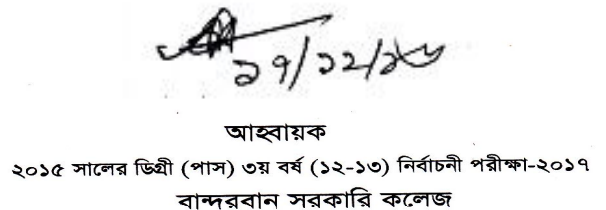 ১৭/১২/১৬
আহবায়ক
২০১৫ সালের ডিগ্রী (পাস) ৩য় বর্ষ (১২-১৩) নির্বাচনী পরীক্ষা-২০১৭
বান্দরবান সরকারি কলেজ